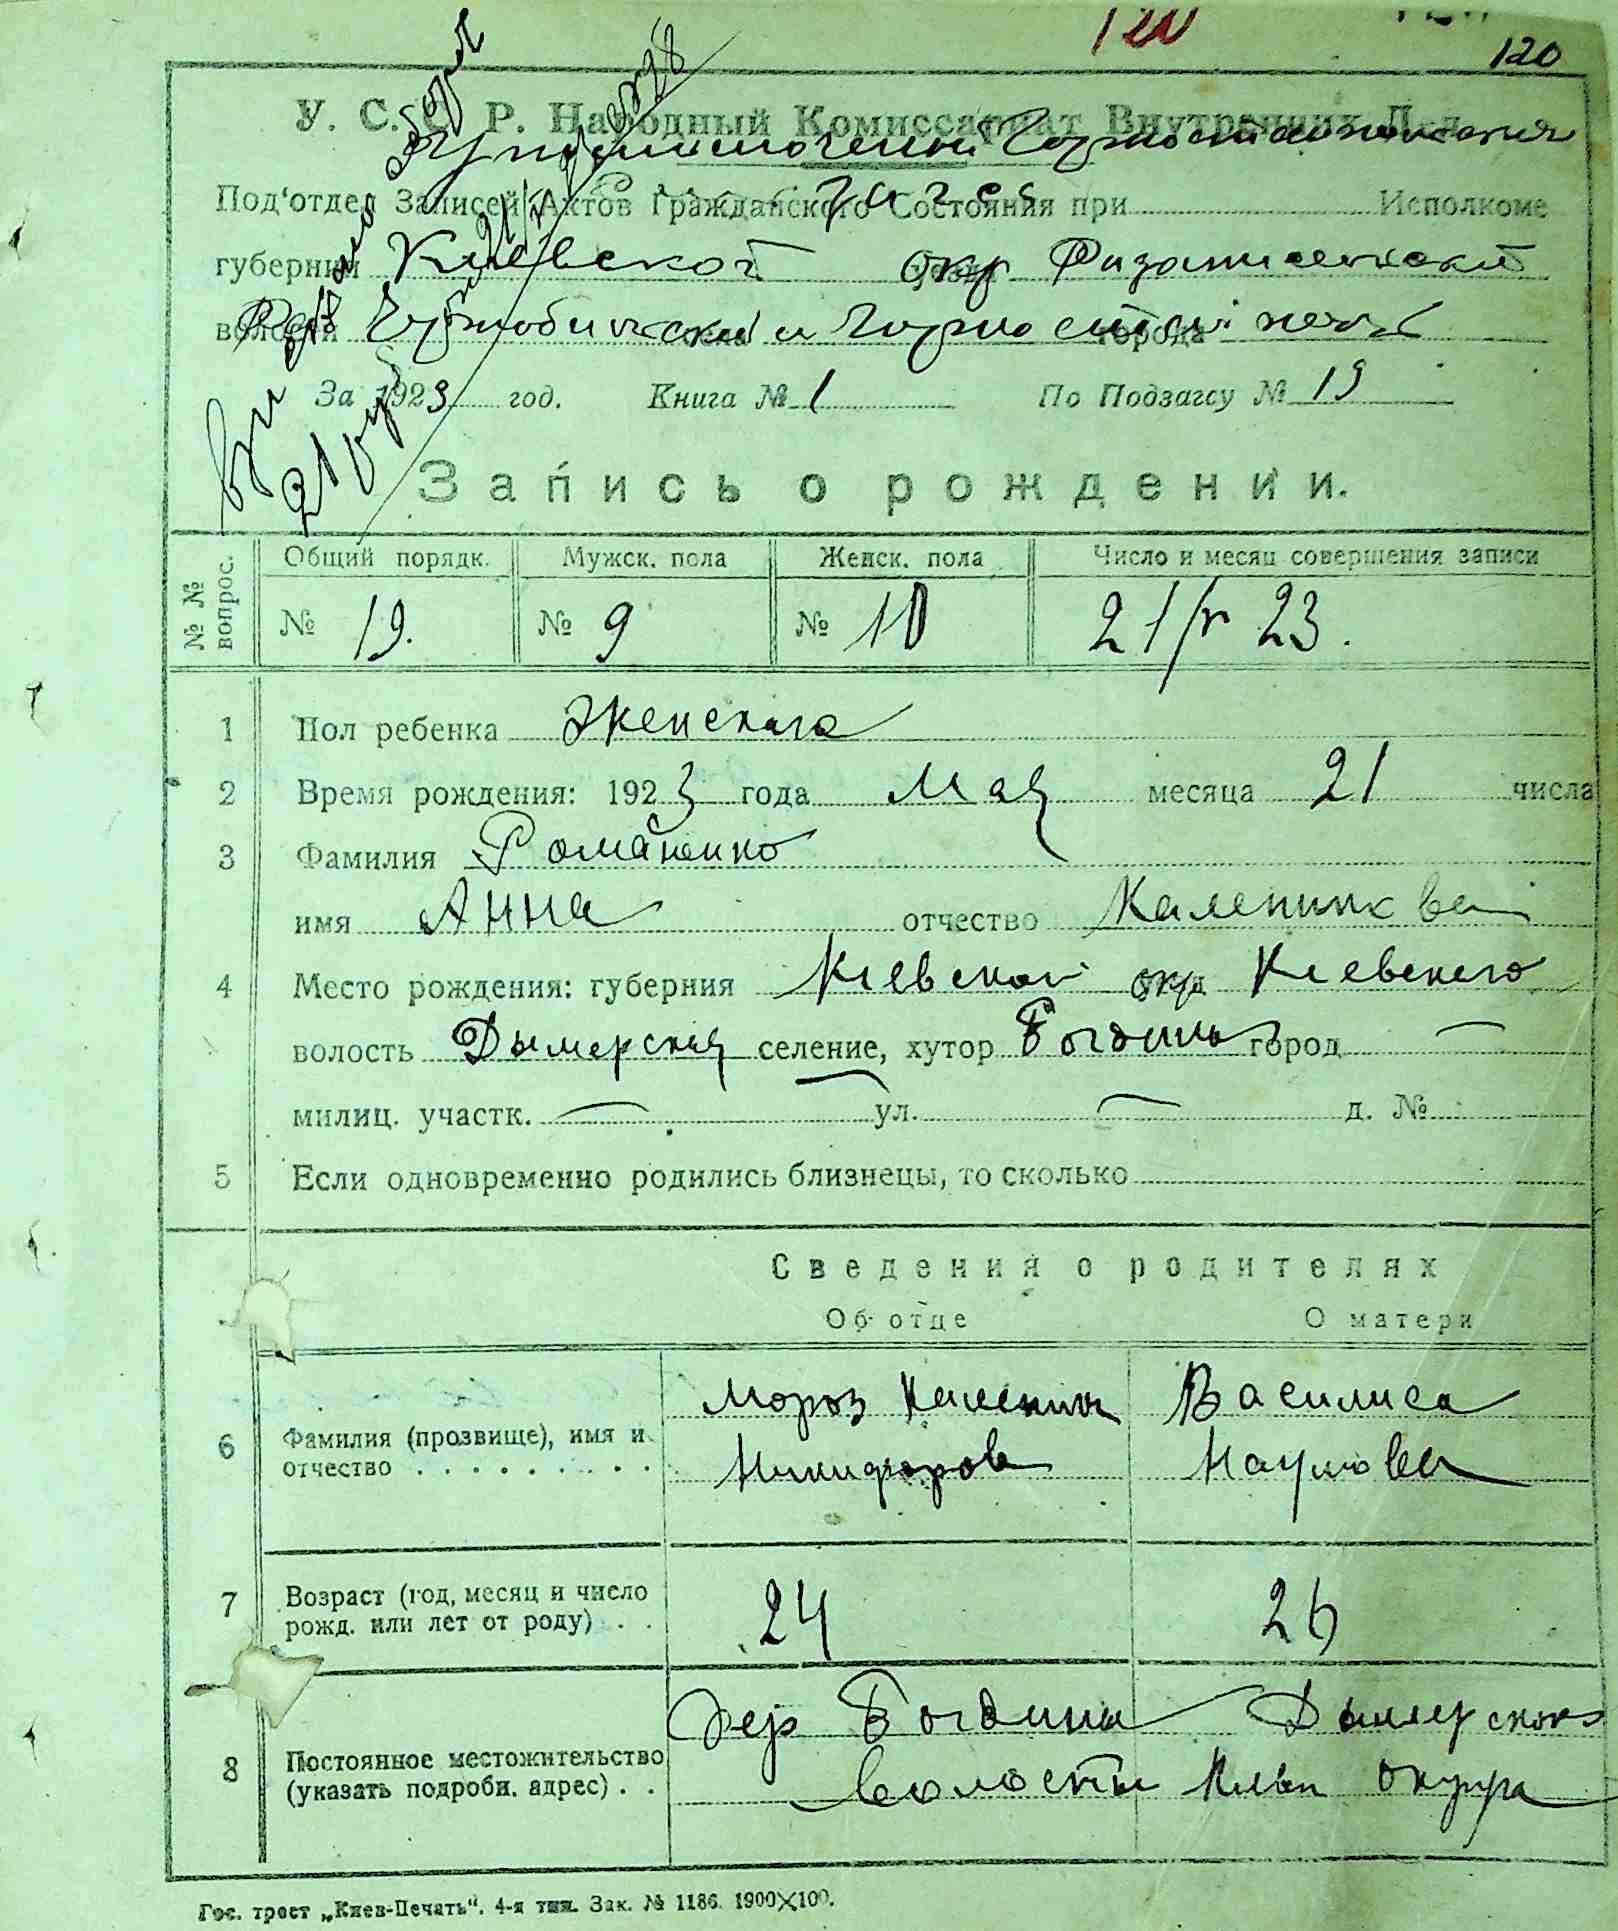 120
120
У. С. С. Р. Народный Комиссариат Внутренних Дел
Под'отдел Записей Актов Гражданского Состояния при Исполкоме
губернии Киевской окр
волости и города
За 1923 год. Книга № 1 По Подзагсу № 19
Запись о рождении.
№ № вопрос. Общий порядк. Мужск. пола Женск. пола Число и месяц совершения записи
№ 19. № 9 № 10 21/V 23.
1 Пол ребенка Женскаго
2 Время рождения: 1923 года Мая месяца 21 числа
3 Фамилия Романенко
имя Анна отчество
4 Место рождения: губерния Киевской окр Киевского
волость Дымерская селение, хутор Богдины город —
милиц. участк. — ул. — д. №
5 Если одновременно родились близнецы, то сколько
Сведения о родителях
Об отце О матери
6 Фамилия (прозвище), имя и отчество . . . . . . . . . .
Мороз Каленик Василиса
Никифоров Наумовна
7 Возраст (год, месяц и число рожд. или лет от роду) . .
24 26
8 Постоянное местожительство (указать подробн. адрес) . .
дер Богдины Дымерской
волости Киев округа
Гос. трест „Киев-Печать“. 4-я тип. Зак. № 1186. 1900×100.